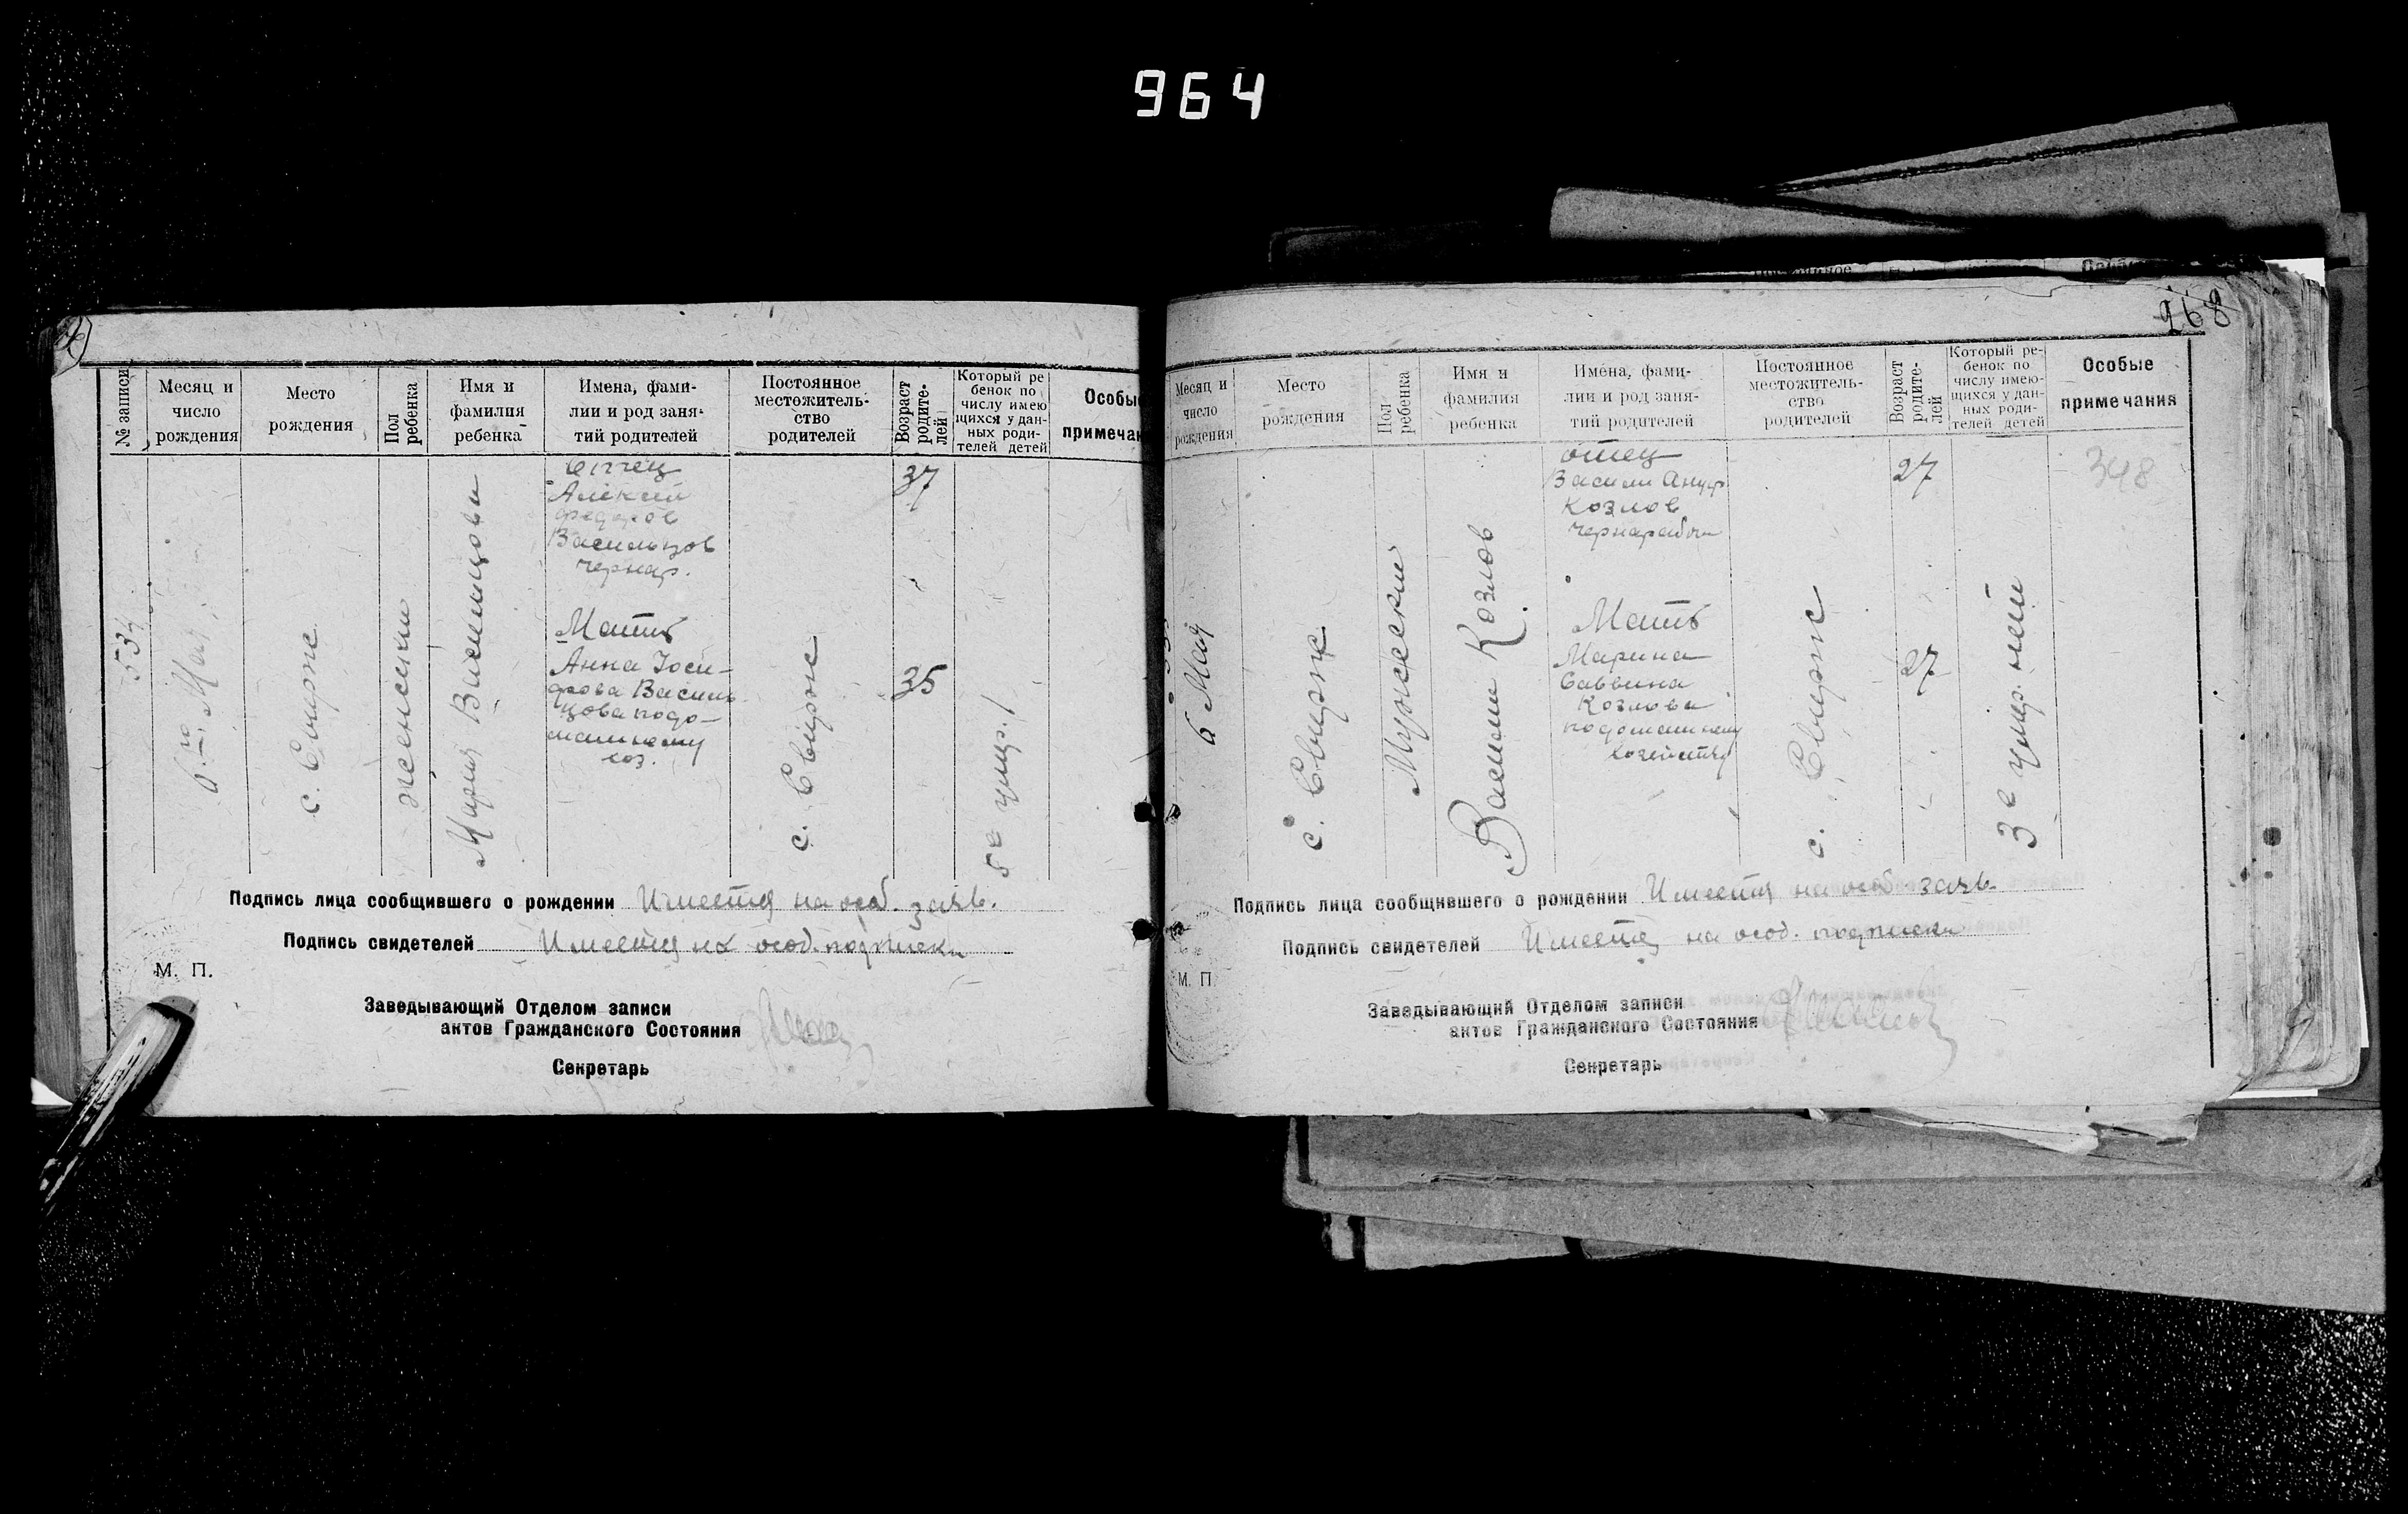 964
№ записи
Месяц и
число
рождения
Место
рождения
Пол
ребенка
Имя и
фамилия
ребенка
Имена, фами-
лии и род заня-
тий родителей
Постоянное
местожитель-
ство
родителей
Возраст
родите-
лей
Который ре
бенок по
числу имею
щихся у дан-
ных роди-
телей детей
Особы
примечан
534
6го Мая
с. Свирж
женский
Мария
Отец
Алексей
Федоров
Васильцов
чернор.
Мать
Анна Іоси-
фова Василь-
цова подо-
машнему
хоз.
с. Свирж
37
35
5е умер. 1
Подпись лица сообщившего о рождении Имеется на особ. заяв.
Подпись свидетелей Имеется на особ. подписки
М. П.
Заведывающий Отделом записи
актов Гражданского Состояния
Секретарь
268
Месяц и
число
рождения
Место
рождения
Пол
ребенка
Имя и
фамилия
ребенка
Имена, фами-
лии и род заня-
тий родителей
Постоянное
местожитель-
ство
родителей
Возраст
родите-
лей
Который ре-
бенок по
числу имею-
щихся у дан-
ных роди-
телей детей
Особые
примечания
6 Мая
с. Свирж
Мужеский
Васили Козлов
отец
Васили
Козлов
чернарабочи
Мать
Марина
Саввина
Козлова
подомашнему
хозейству
с. Свирж
27
27
3е умер. ней
348
Подпись лица сообщившего о рождении Имеется на особ заяв.
Подпись свидетелей Имеется на особ. подписки
М. П.
Заведывающий Отделом записи
актов Гражданского Состояния
Секретарь